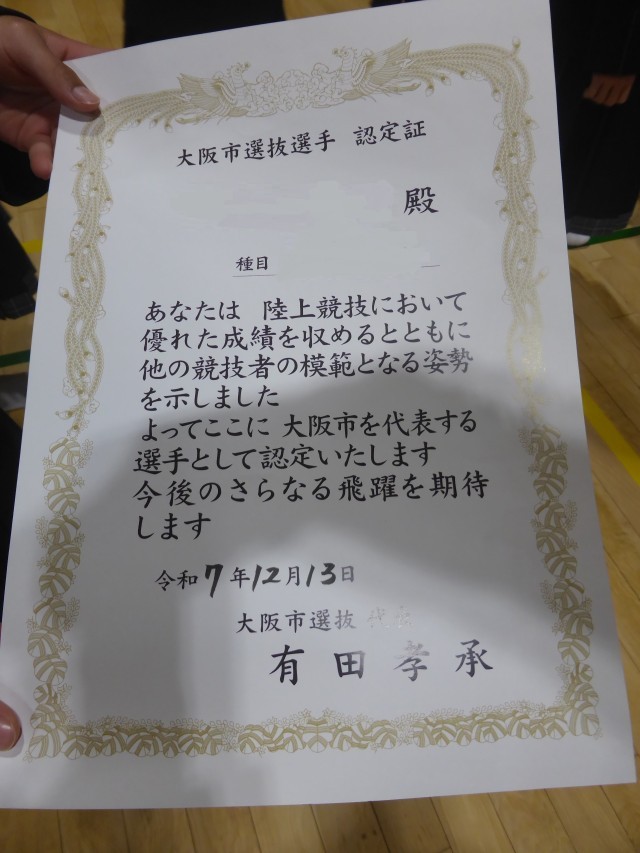 大阪市選抜選手 認定証
殿
種目
あなたは 陸上競技において
優れた成績を収めるとともに
他の競技者の模範となる姿勢
を示しました
よってここに 大阪市を代表する
選手として認定いたします
今後のさらなる飛躍を期待
します
令和7年12月13日
大阪市選抜 代表
有田孝承